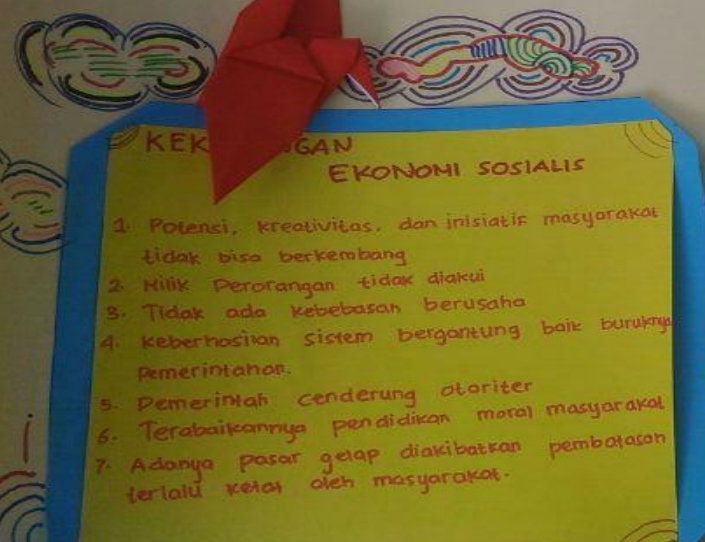 KEK NGAN
EKONOMI SOSIALIS
1. Potensi, kreativitas, dan inisiatif masyarakat
tidak bisa berkembang
2. Milik Perorangan tidak diakui
3. Tidak ada kebebasan berusaha
4. Keberhasilan sistem bergantung baik buruknya
Pemerintahan.
5. Pemerintah cenderung otoriter
6. Terabaikannya pendidikan moral masyarakat
7. Adanya pasar gelap diakibatkan pembatasan
terlalu ketat oleh masyarakat.